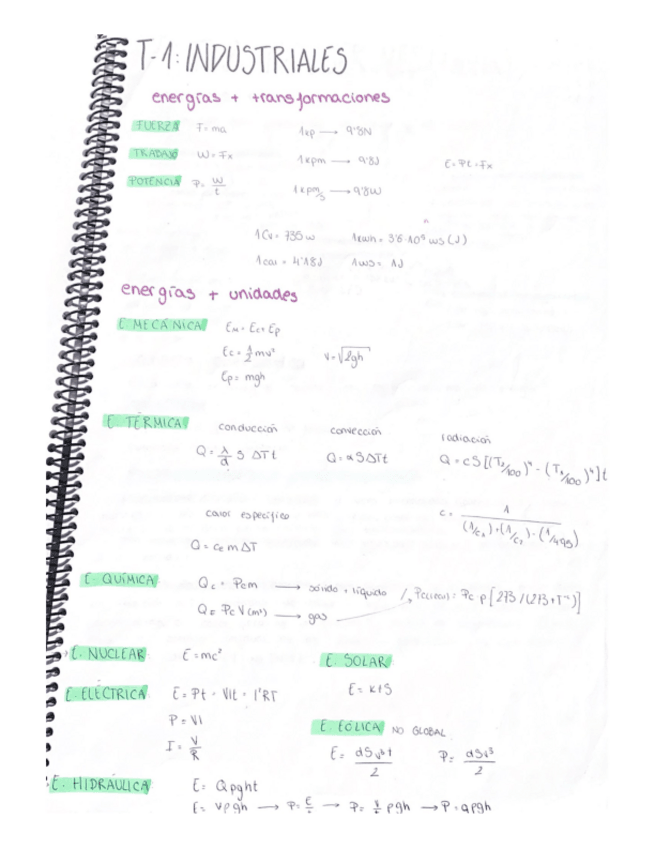 T-1: INDUSTRIALES
energías + transformaciones
FUERZA F=ma 1kp → 9'8N
TRABAJO W=Fx 1kpm → 9'8J E=Pt=Fx
POTENCIA P= W/t 1kpm/s → 9'8W
1CV= 735w 1kwh= 3'6·10⁶ ws (J)
1cal= 4'18J 1ws= 1J
energías + unidades
E. MECÁNICA Em= Ec+Ep
Ec= 1/2 mv² v=√2gh
Ep= mgh
E. TÉRMICA conducción convección radiación
Q= λ/d S ΔT t Q= αSΔTt Q= cS[(T₂/100)⁴ - (T₁/100)⁴]t
calor específico c= 1/((1/c₁)+(1/c₂)-(1/4'95))
Q= ce m ΔT
E. QUÍMICA Qc= Pcm → sólido + líquido / Pc(real)= Pc p [273/(273+Tª)]
Q= Pc V (m³) → gas
E. NUCLEAR E=mc² E. SOLAR
E. ELÉCTRICA E= Pt = VIt = I²RT E= KtS
P= VI
E. EÓLICA NO GLOBAL
I= V/R E= dSv³t/2 P= dSv³/2
E. HIDRÁULICA E= Qρght
E= Vρgh → P= E/t → P= V/t ρgh → P= Qρgh